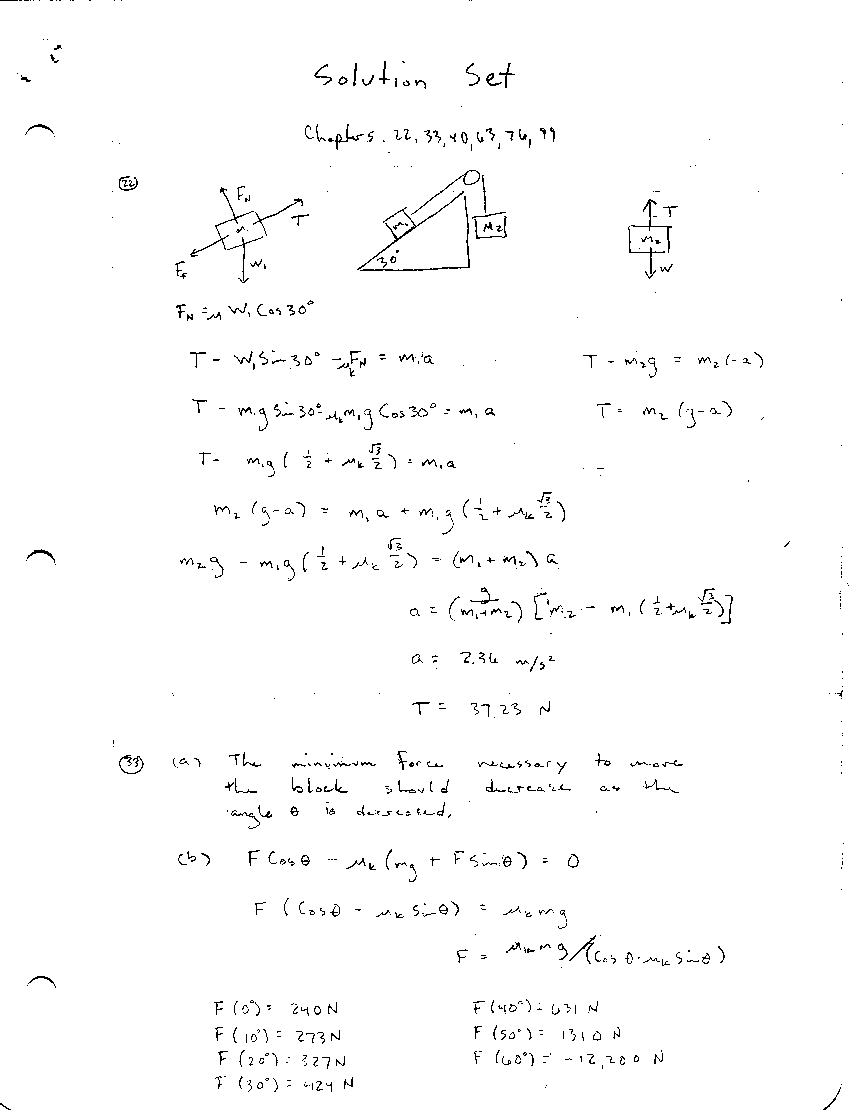 Solution Set
Chapters. 22, 33, 40, 63, 76, 99
(22)
F_N
T
m₁
F_F
W₁
m₁
M₂
30°
T
m₂
W
F_N = μ W₁ Cos 30°
T - W₁ Sin 30° - μ_k F_N = m₁a
T - m₂g = m₂(-a)
T - m₁g Sin 30° - μ_k m₁g Cos 30° = m₁a
T = m₂(g-a)
T - m₁g(1/2 + μ_k √3/2) = m₁a
m₂(g-a) = m₁a + m₁g(1/2 + μ_k √3/2)
m₂g - m₁g(1/2 + μ_k √3/2) = (m₁+m₂)a
a = (g/(m₁+m₂)) [m₂ - m₁(1/2 + μ_k √3/2)]
a = 2.36 m/s²
T = 37.23 N
(33) (a) The minimum force necessary to move
the block should decrease as the
angle θ is decreased.
(b) F Cos θ - μ_k(mg + F Sin θ) = 0
F (Cos θ - μ_k Sin θ) = μ_k mg
F = μ_k mg/(Cos θ - μ_k Sin θ)
F (0°) = 240 N
F (40°) = 631 N
F (10°) = 273 N
F (50°) = 1310 N
F (20°) = 327 N
F (60°) = -12,200 N
F (30°) = 424 N